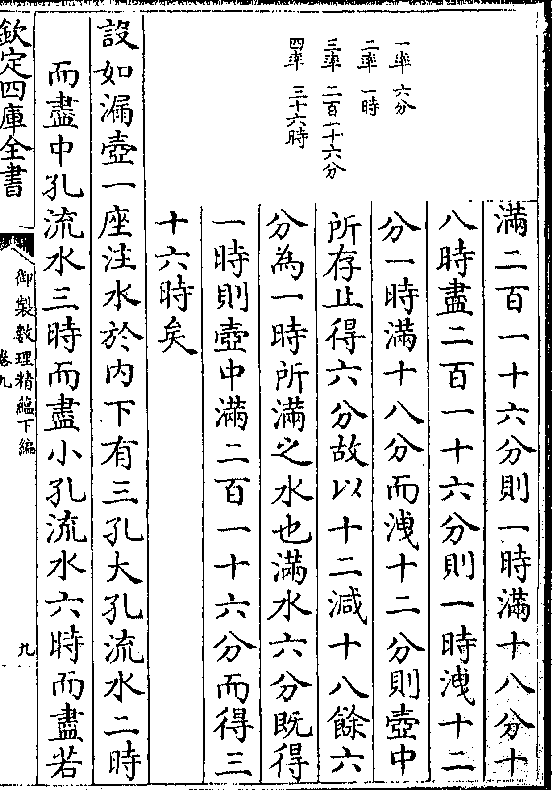 滿二百一十六分則一時滿十八分十
八時盡二百一十六分則一時洩十二
分一時滿十八分而洩十二分則壺中
所存止得六分故以十二減十八餘六
分為一時所滿之水也滿水六分既得
一時則壺中滿二百一十六分而得三
十六時矣
一率 六分
二率 一時
三率 二百一十六分
四率 三十六時
設如漏壺一座注水於內下有三孔大孔流水二時
而盡中孔流水三時而盡小孔流水六時而盡若
欽定四庫全書
御製數理精蘊下編
卷九
九